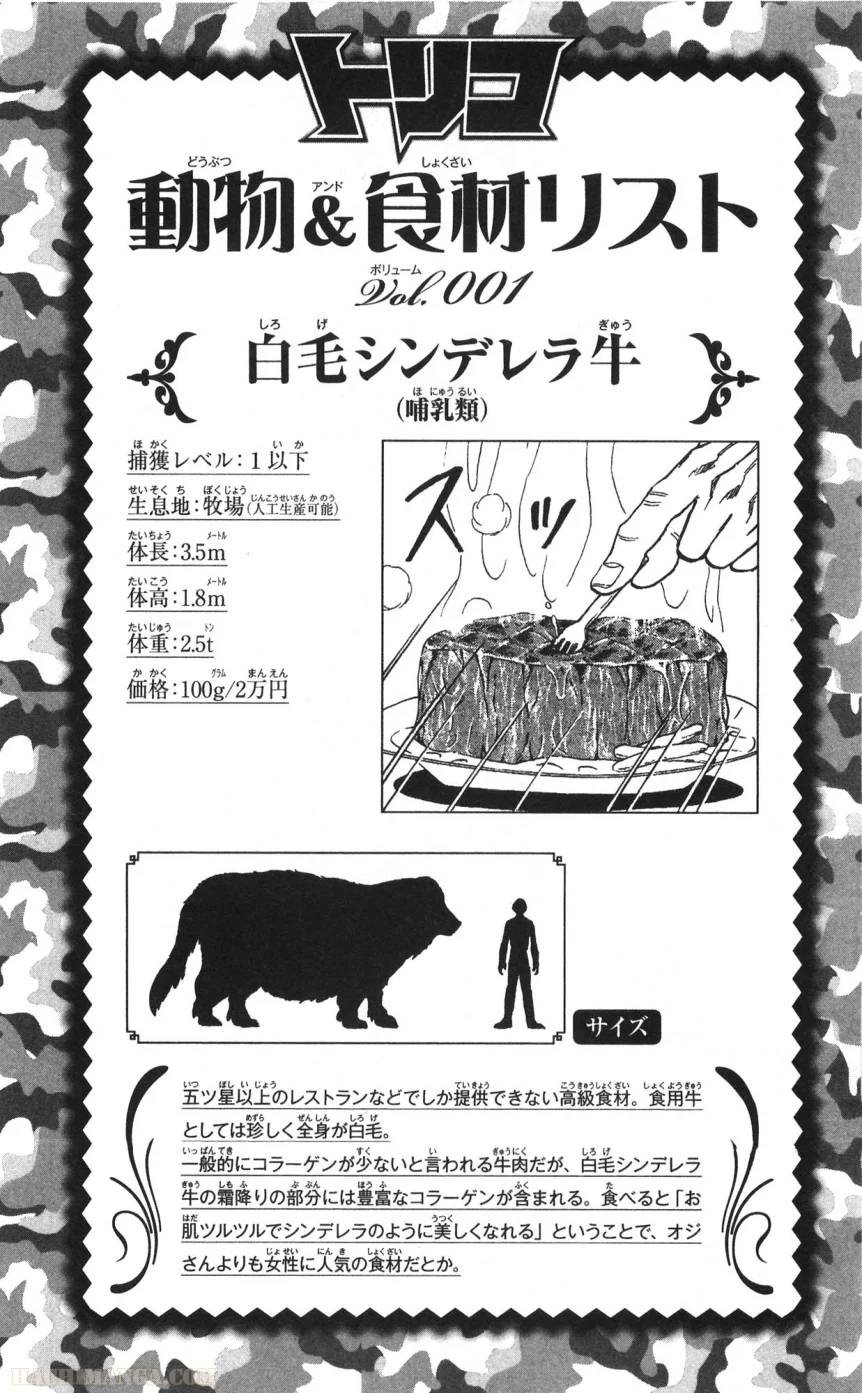 トリコ
動物&食材リスト
Vol.001
白毛シンデレラ牛
(哺乳類)
捕獲レベル:1以下
生息地:牧場(人工生産可能)
体長:3.5m
体高:1.8m
体重:2.5t
価格:100g/2万円
スッ
サイズ
五ツ星以上のレストランなどでしか提供できない高級食材。食用牛
としては珍しく全身が白毛。
一般的にコラーゲンが少ないと言われる牛肉だが、白毛シンデレラ
牛の霜降りの部分には豊富なコラーゲンが含まれる。食べると「お
肌ツルツルでシンデレラのように美しくなれる」ということで、オジ
さんよりも女性に人気の食材だとか。
HACHIMANGA.COM